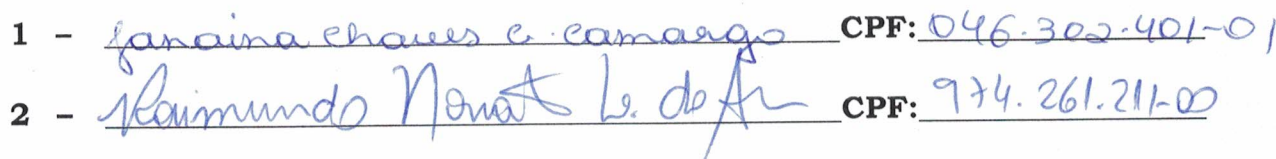 1 - Janaina Chaves C. Camargo CPF: 046.302.401-01
2 - Raimundo Nonato L. de CPF: 974.261.211-00